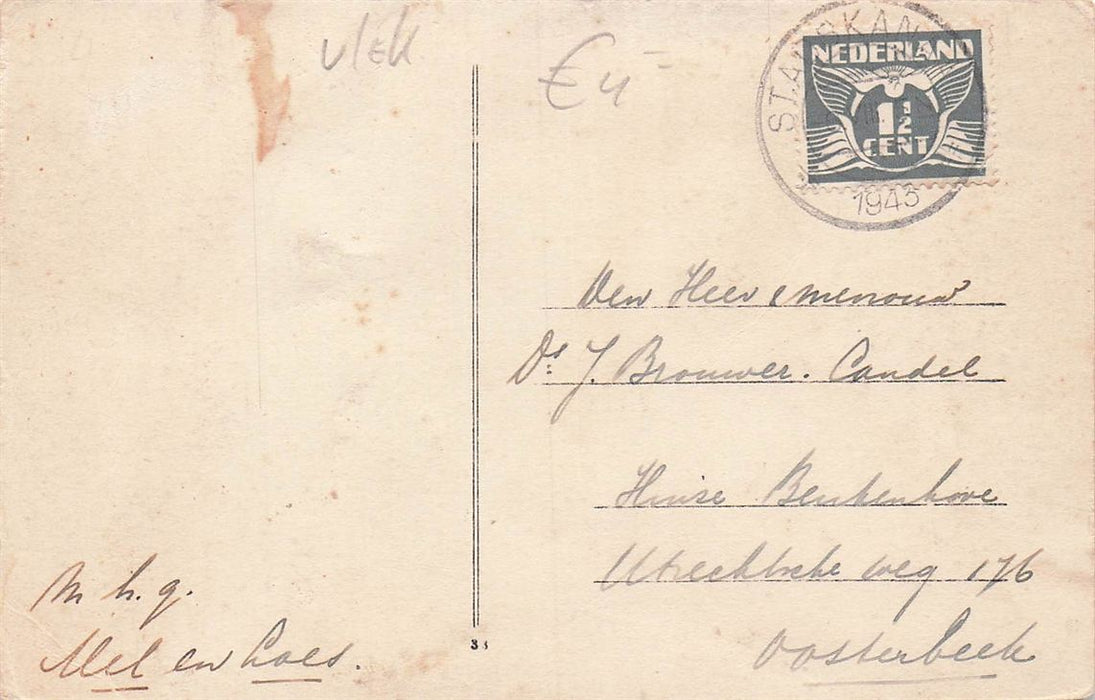 vlek
€ 4-
STADSKANAAL
1943
NEDERLAND
1½
CENT
Den Heer & mevrouw
Ds J. Brouwer. Candel
Huize Beukenhove
Utrechtsche weg 176
Oosterbeek
M h. g.
Mel en Loes.